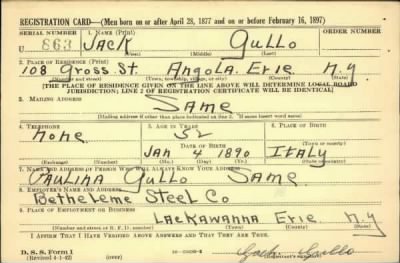 REGISTRATION CARD—(Men born on or after April 28, 1877 and on or before February 16, 1897)
SERIAL NUMBER 1. NAME (Print) ORDER NUMBER
U 863 JACK GULLO
(First) (Middle) (Last)
2. PLACE OF RESIDENCE (Print)
108 Gross St. ANGOLA. Erie N.Y
(Number and street) (Town, township, village, or city) (County) (State)
[THE PLACE OF RESIDENCE GIVEN ON THE LINE ABOVE WILL DETERMINE LOCAL BOARD
JURISDICTION; LINE 2 OF REGISTRATION CERTIFICATE WILL BE IDENTICAL]
3. MAILING ADDRESS
SAME
[Mailing address if other than place indicated on line 2. If same insert word same]
4. TELEPHONE 5. AGE IN YEARS 6. PLACE OF BIRTH
None 52
DATE OF BIRTH
JAN 4 1890 ITALY
(Exchange) (Number) (Mo.) (Day) (Yr.) (State or country)
7. NAME AND ADDRESS OF PERSON WHO WILL ALWAYS KNOW YOUR ADDRESS
PAULINA GULLO SAME
8. EMPLOYER'S NAME AND ADDRESS
Betheleme Steel Co
9. PLACE OF EMPLOYMENT OR BUSINESS
LACKAWANNA Erie N.Y
(Number and street or R. F. D. number) (Town) (County) (State)
I AFFIRM THAT I HAVE VERIFIED ABOVE ANSWERS AND THAT THEY ARE TRUE.
D. S. S. Form 1
(Revised 4-1-42) (over) Gullo